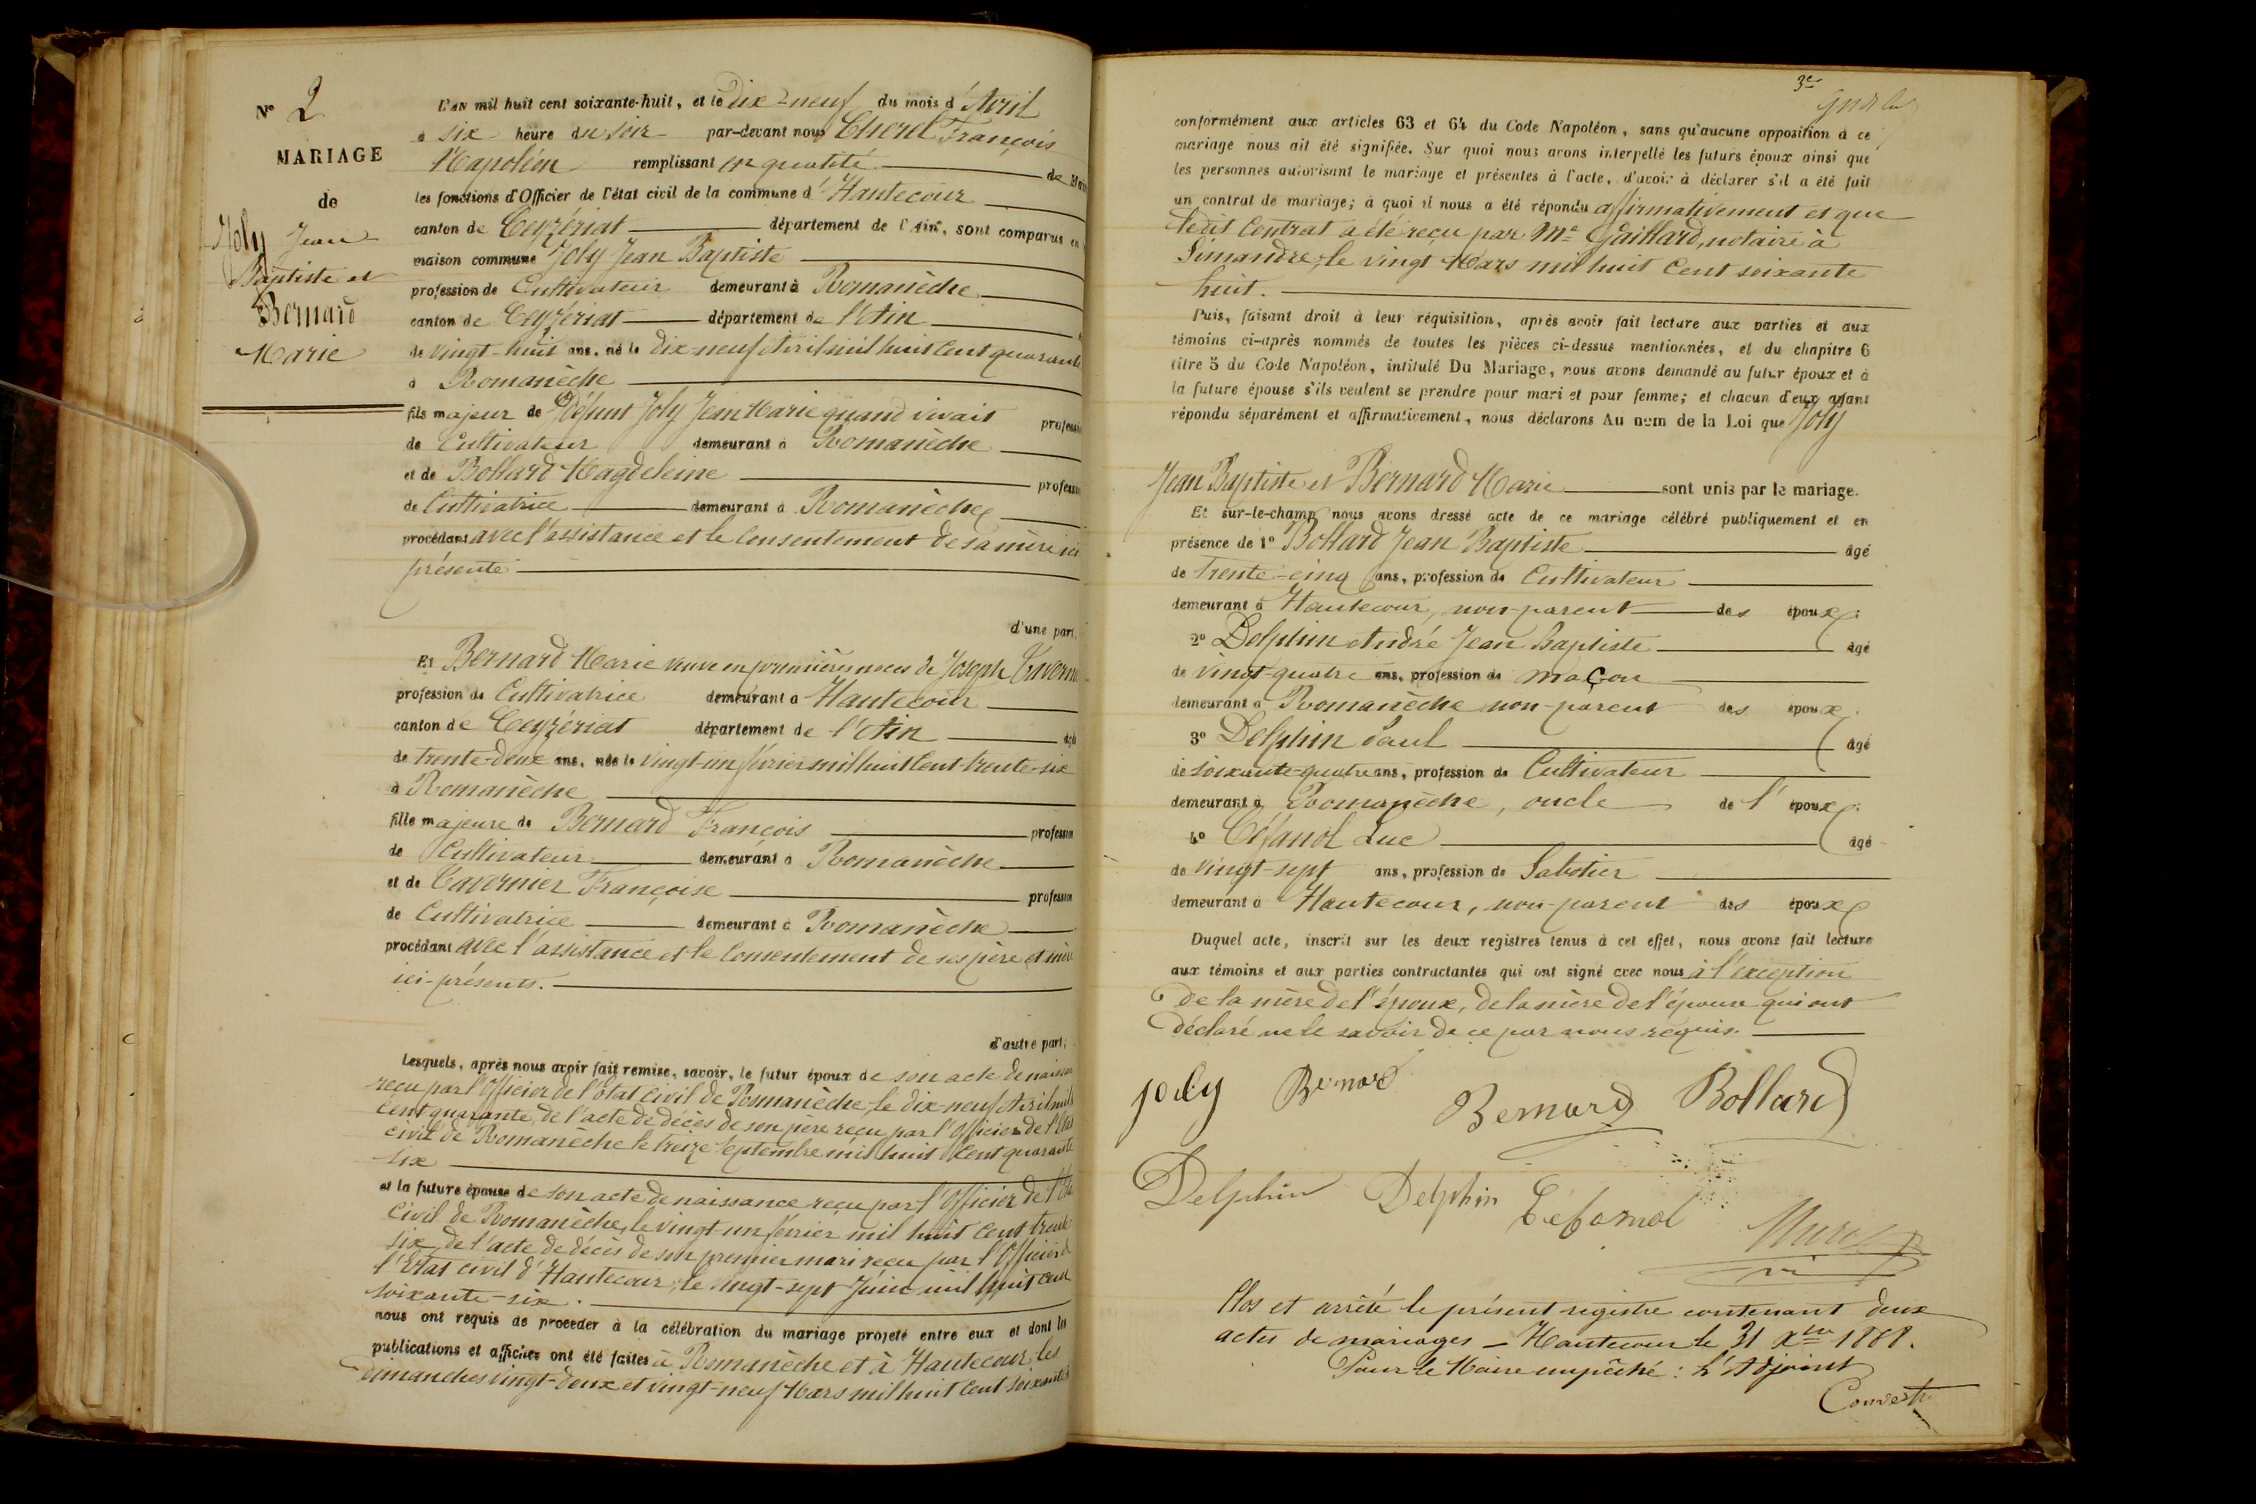 N° 2
MARIAGE
de
Joly Jean
Baptiste et
Bernard
Marie
L'AN mil huit cent soixante-huit, et le Dix-neuf du mois d'Avril
a six heure du soir par-devant nous Cherel François
Napoléon remplissant en qualité de Maire
les fonctions d'Officier de l'état civil de la commune d'Hautecour
canton de Ceyzériat département de l'Ain, sont comparus en
maison commune Joly Jean Baptiste
profession de Cultivateur demeurant à Romanèche
canton de Ceyzériat département de l'Ain
de vingt-huit ans, né le dix-neuf Avril mil huit cent quarante
à Romanèche
fils majeur de Défunt Joly Jean Marie quand vivait profession
de Cultivateur demeurant à Romanèche
et de Bollard Magdeleine profession
de Cultivatrice demeurant à Romanèche
procédant avec l'assistance et le consentement de sa mère ici
présente
d'une part,
Et Bernard Marie veuve en premières noces de Joseph Tavernier
profession de Cultivatrice demeurant à Hautecour
canton de Ceyzériat département de l'Ain agé
de trente-deux ans, née le vingt-un février mil huit cent trente-six
à Romanèche
fille majeure de Bernard François profession
de Cultivateur demeurant à Romanèche
et de Tavernier Françoise profession
de Cultivatrice demeurant à Romanèche
procédant avec l'assistance et le consentement de ses père et mère
ici-présents.
d'autre part;
Lesquels, après nous avoir fait remise, savoir, le futur époux de son acte de naissance
reçu par l'Officier de l'état civil de Romanèche, le dix-neuf Avril mil huit
cent quarante, de l'acte de décès de son père reçu par l'Officier de l'Etat
civil de Romanèche le treize Septembre mil huit cent quarante
six
et la future épouse de son acte de naissance reçu par l'Officier de l'Etat
Civil de Romanèche, le vingt-un février mil huit cent trente
six, de l'acte de décès de son premier mari reçu par l'Officier de
l'Etat civil d'Hautecour, le vingt-sept Juin mil huit cent
soixante-six.
nous ont requis de procéder à la célébration du mariage projeté entre eux et dont les
publications et affiches ont été faites à Romanèche et à Hautecour, les
dimanches vingt-deux et vingt-neuf Mars mil huit cent soixante
3e
conformément aux articles 63 et 64 du Code Napoléon, sans qu'aucune opposition à ce
mariage nous ait été signifiée. Sur quoi nous avons interpellé les futurs époux ainsi que
les personnes autorisant le mariage et présentes à l'acte, d'avoir à déclarer s'il a été fait
un contrat de mariage; à quoi il nous a été répondu affirmativement et que
ledit Contrat a été reçu par Me Gaillard, notaire à
Simandre, le vingt Mars mil huit cent soixante
huit.
Puis, faisant droit à leur réquisition, après avoir fait lecture aux parties et aux
témoins ci-après nommés de toutes les pièces ci-dessus mentionnées, et du chapitre 6
titre 5 du Code Napoléon, intitulé Du Mariage, nous avons demandé au futur époux et à
la future épouse s'ils veulent se prendre pour mari et pour femme; et chacun d'eux ayant
répondu séparément et affirmativement, nous déclarons Au nom de la Loi que Joly
Jean Baptiste et Bernard Marie sont unis par le mariage.
Et sur-le-champ nous avons dressé acte de ce mariage célébré publiquement et en
présence de 1° Bollard Jean Baptiste âgé
de trente-cinq ans, profession de Cultivateur
demeurant à Hautecour, non-parent des époux;
2° Delphin André Jean Baptiste âgé
de vingt-quatre ans, profession de maçon
demeurant à Romanèche non-parent des époux;
3° Delphin Paul âgé
de soixante-quatre ans, profession de Cultivateur
demeurant à Romanèche, oncle de l'époux;
4° Téfanol Luc âgé
de vingt-sept ans, profession de Sabotier
demeurant à Hautecour, non-parent des époux
Duquel acte, inscrit sur les deux registres tenus à cet effet, nous avons fait lecture
aux témoins et aux parties contractantes qui ont signé avec nous à l'exception
de la mère de l'époux, de la mère de l'épouse qui ont
déclaré ne le savoir de ce par nous requis.
joly Bernard Bernard Bollard
Delphin Delphin
Clos et arrêté le présent registre contenant deux
actes de mariages — Hautecour le 31 Xbre 1868.
Pour le Maire empêché: L'Adjoint